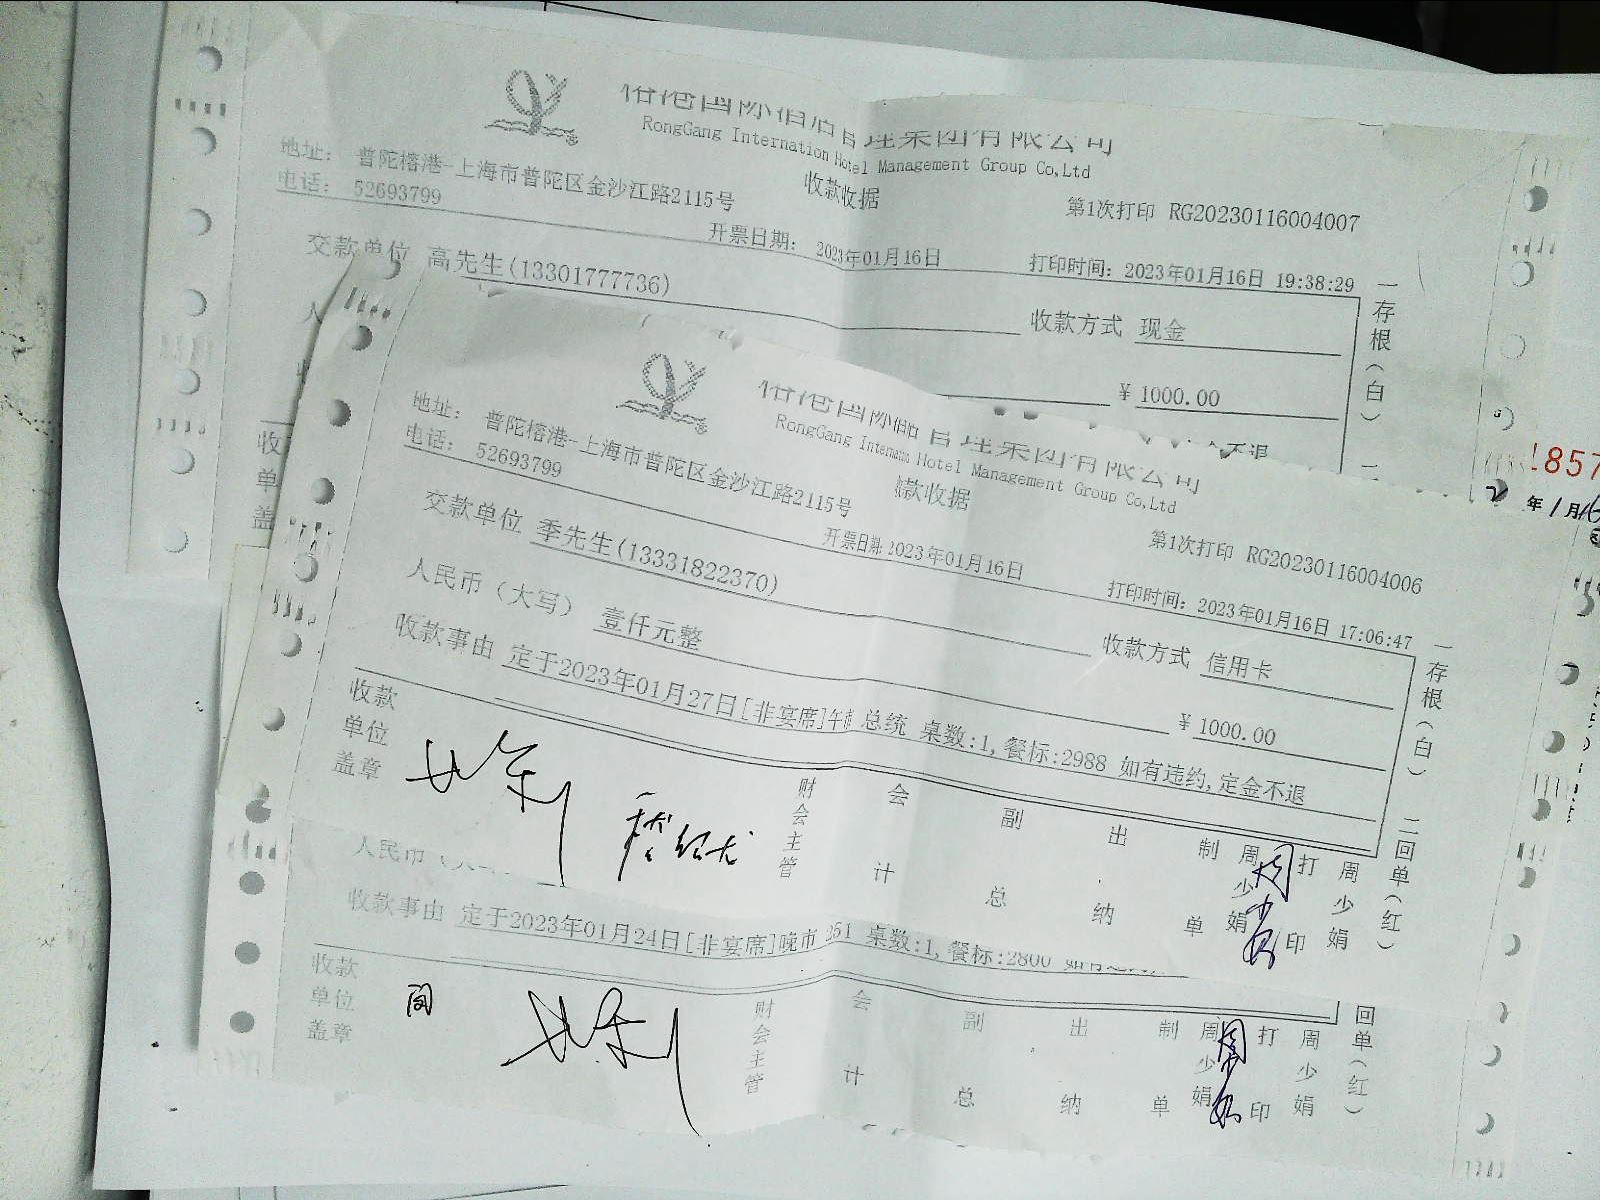 RongGang Internation Hotel Management Group Co,Ltd
收款收据
地址： 普陀榕港-上海市普陀区金沙江路2115号
电话： 52693799
第1次打印 RG20230116004007
开票日期： 2023年01月16日
打印时间：2023年01月16日 19:38:29
交款单位 高先生(13301777736)
收款方式 现金
¥ 1000.00
不退
一存根（白）
857
年1月16
管理集团有限公司
Hotel Management Group Co,Ltd
款收据
地址： 普陀榕港-上海市普陀区金沙江路2115号
电话： 52693799
第1次打印 RG20230116004006
开票日期 2023年01月16日
打印时间：2023年01月16日 17:06:47
交款单位 季先生(13331822370)
收款方式 信用卡
人民币（大写） 壹仟元整
¥ 1000.00
收款事由 定于2023年01月27日[非宴席]午 总统 桌数:1,餐标:2988 如有违约,定金不退
收款单位盖章
财会主管
会计
副总
出纳
制单
周少娟
打印
周少娟
一存根（白） 二回单（红）
人民币
收款事由 定于2023年01月24日[非宴席]晚市 251 桌数:1,餐标:2800
收款单位盖章
财会主管
会计
副总
出纳
制单
周少娟
打印
周少娟
回单（红）